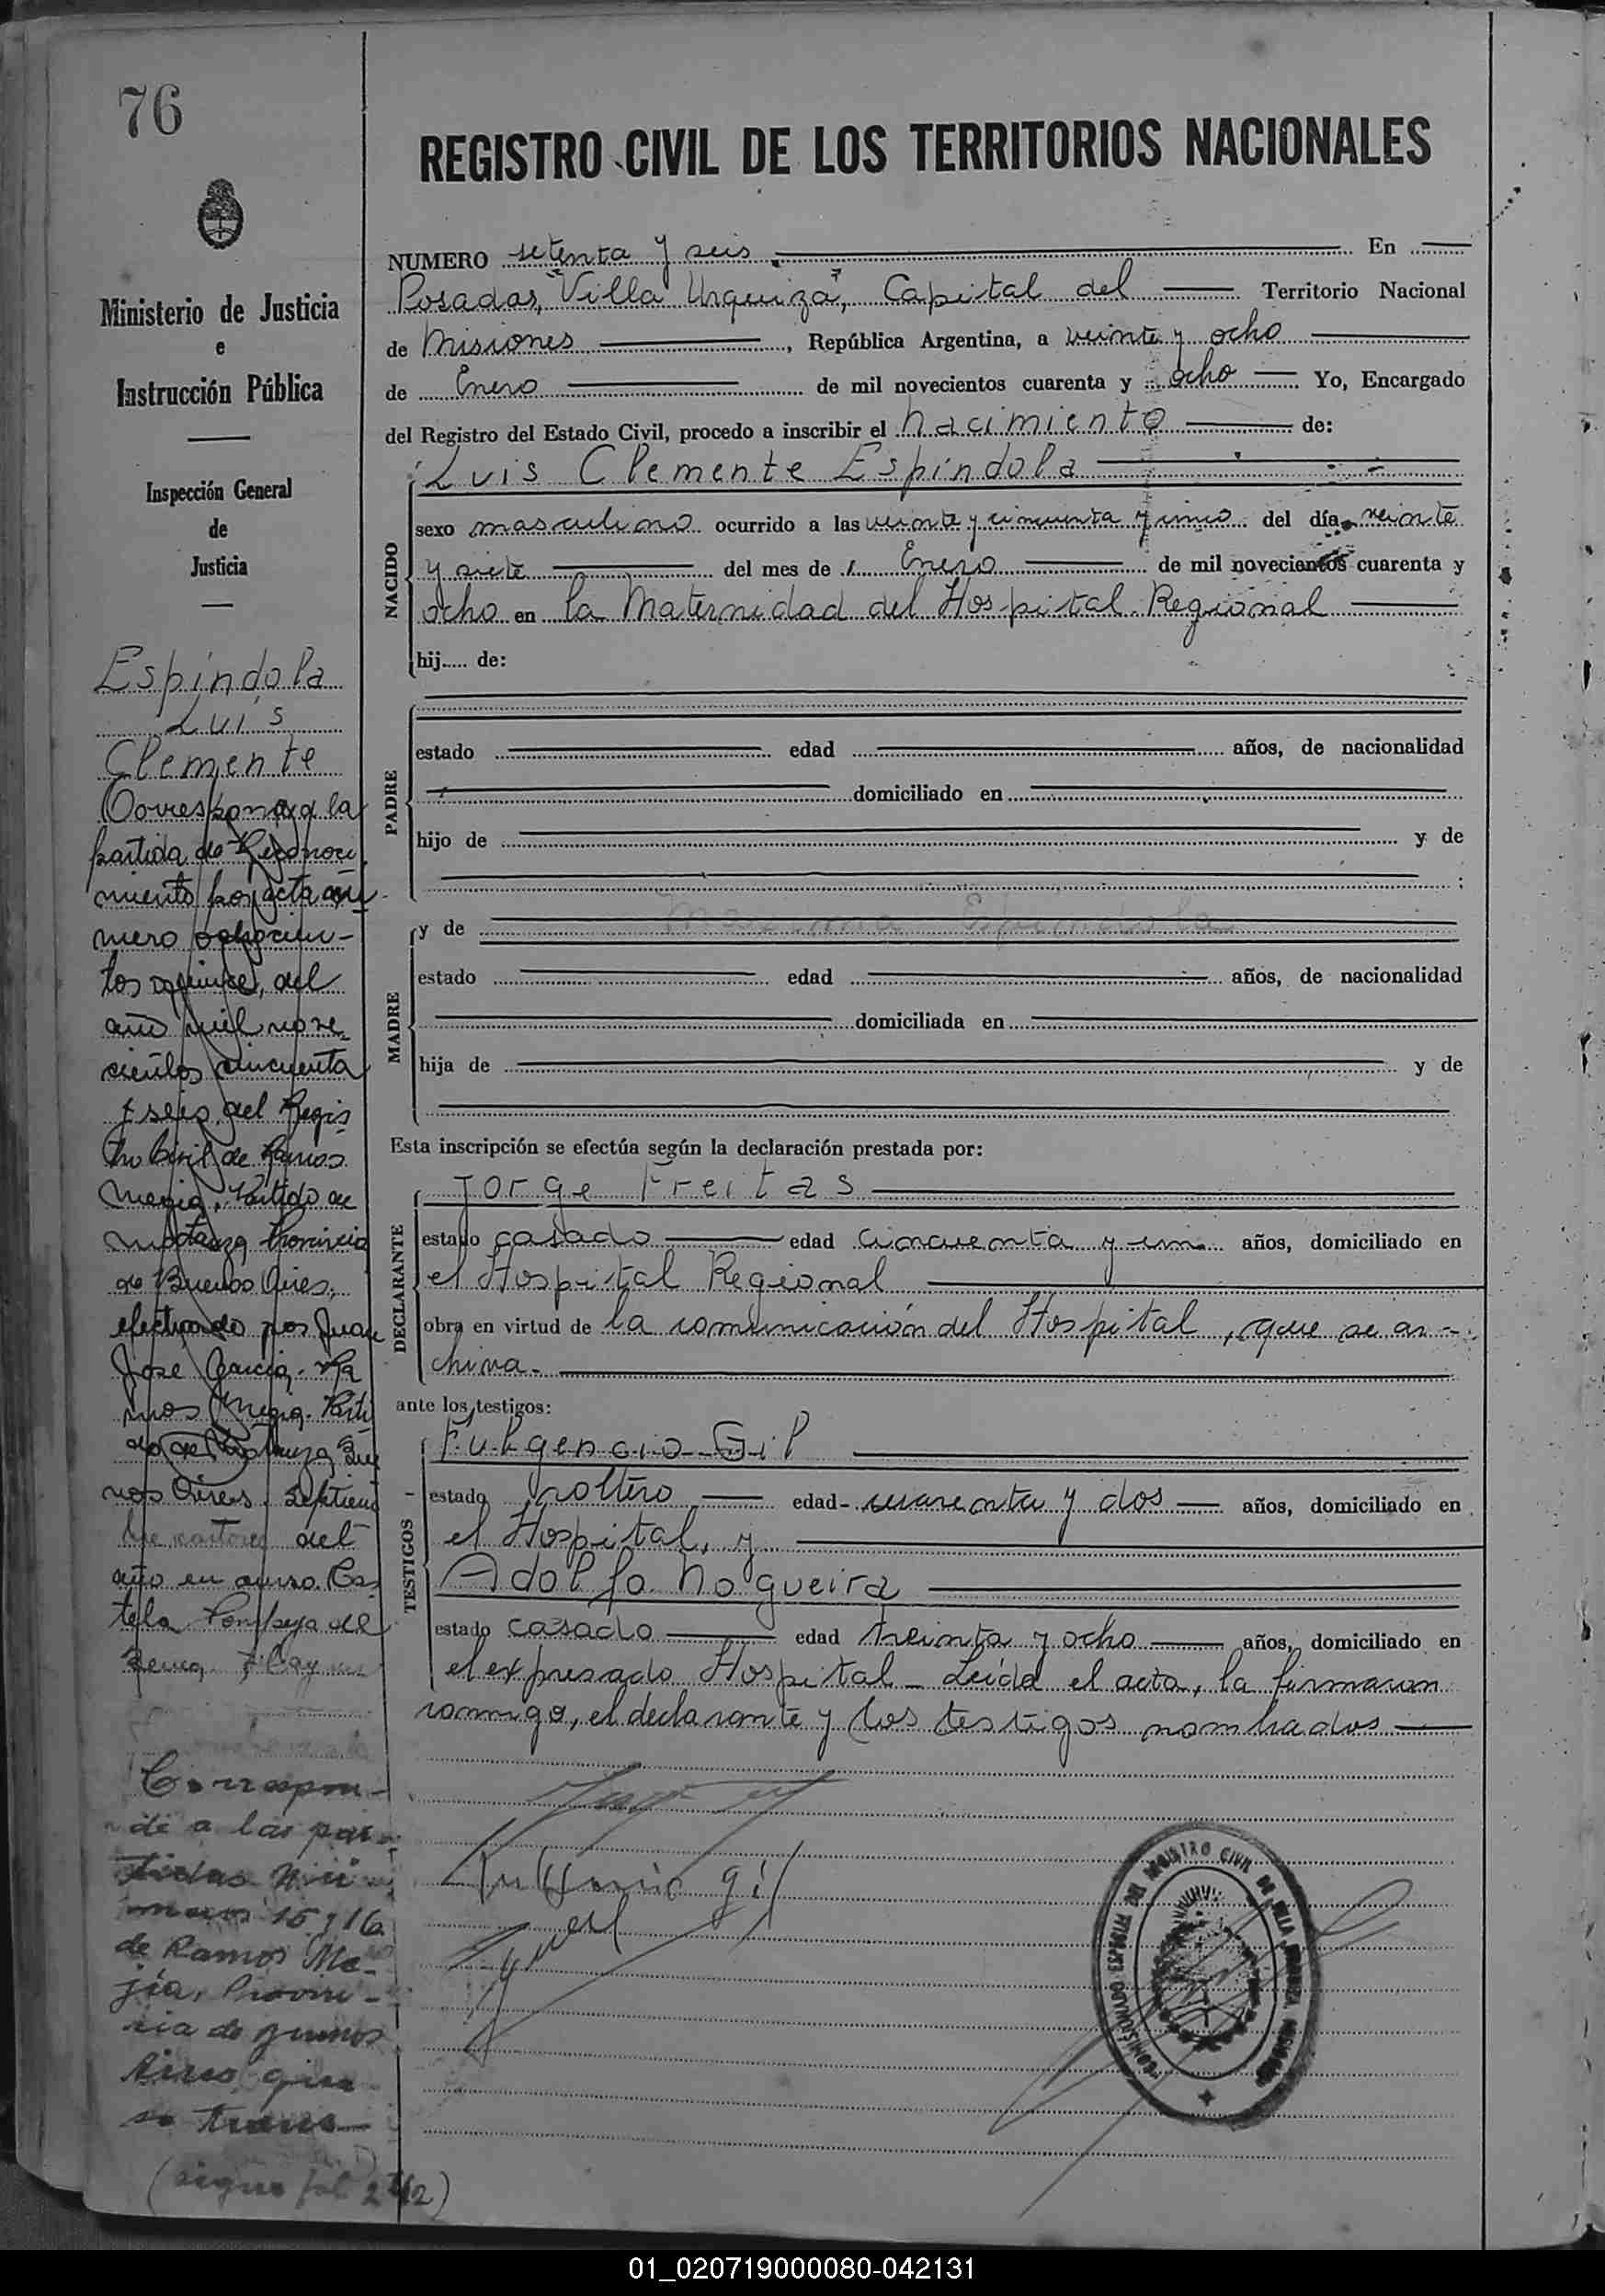 76
REGISTRO CIVIL DE LOS TERRITORIOS NACIONALES
Ministerio de Justicia
e
Instrucción Pública
Inspección General
de
Justicia
Espíndola
Luis
Clemente
Corresponde a la
partida de Reconoci
miento por acta nú-
mero ochocien-
tos quince, del
año mil nove-
cientos cincuenta
y seis, del Regis
tro Civil de Ramos
Mejia, Partido de
Matanza, Provincia
de Buenos Aires,
efectuado por Juan
José Garcia. Ra
mos Mejia. Parti
do de Matanza, Bue
nos Aires, Septiem
bre catorce del
año en curso.
Correspon-
de a las par-
tidas nú
meros 15 y 16
de Ramos Me-
jía, Provin-
cia de Buenos
Aires que
se trans-
(sigue fol 242)
NUMERO setenta y seis. En
Posadas, "Villa Urquiza", Capital del Territorio Nacional
de Misiones, República Argentina, a veinte y ocho
de Enero de mil novecientos cuarenta y ocho Yo, Encargado
del Registro del Estado Civil, procedo a inscribir el nacimiento de:
NACIDO
Luis Clemente Espíndola
sexo masculino ocurrido a las veinte y cincuenta y cinco del día veinte
y siete del mes de Enero de mil novecientos cuarenta y
ocho en la Maternidad del Hospital Regional
hij..... de:
PADRE
estado edad años, de nacionalidad
domiciliado en
hijo de y de
;
MADRE
y de Espíndola
estado edad años, de nacionalidad
domiciliada en
hija de y de
Esta inscripción se efectúa según la declaración prestada por:
DECLARANTE
Jorge Freitas
estado casado edad cincuenta y un años, domiciliado en
el Hospital Regional
obra en virtud de la comunicación del Hospital, que se ar-
chiva.
ante los testigos:
TESTIGOS
Fulgencio Gil
estado soltero edad cuarenta y dos años, domiciliado en
el Hospital, y
Adolfo Nogueira
estado casado edad treinta y ocho años, domiciliado en
el expresado Hospital - Leída el acta, la firmaron
conmigo, el declarante y los testigos nombrados
Fulgencio Gil
REGISTRO CIVIL DE VILLA URQUIZA
01_020719000080-042131